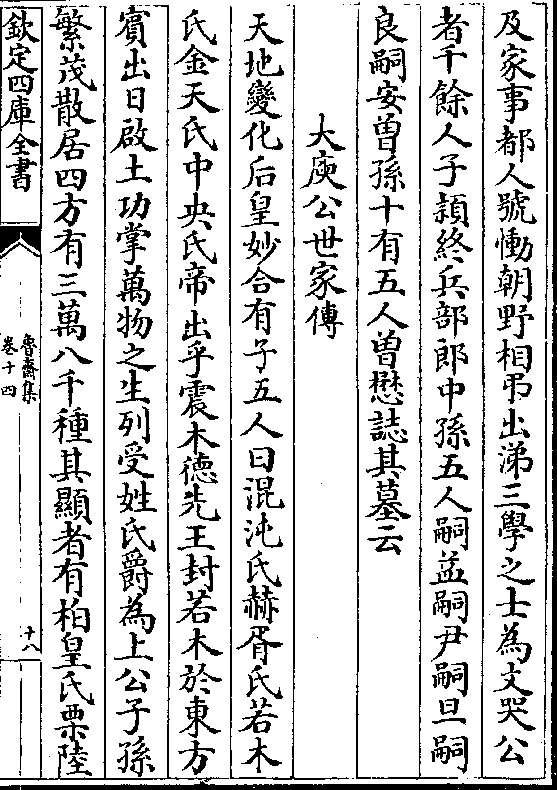 及家事都人號慟朝野相弔出涕三學之士為文哭公
者千餘人子頴終兵部郎中孫五人嗣益嗣尹嗣旦嗣
良嗣安曽孫十有五人曽懋誌其墓云
大庾公世家傳
天地變化后皇妙合有子五人曰混沌氏赫胥氏若木
氏金天氏中央氏帝出乎震木徳先王封若木於東方
賔出日啟土功掌萬物之生列受姓氏爵為上公子孫
繁茂散居四方有三萬八千種其顯者有柏皇氏栗陸
欽定四庫全書
魯齋集
卷十四
十八